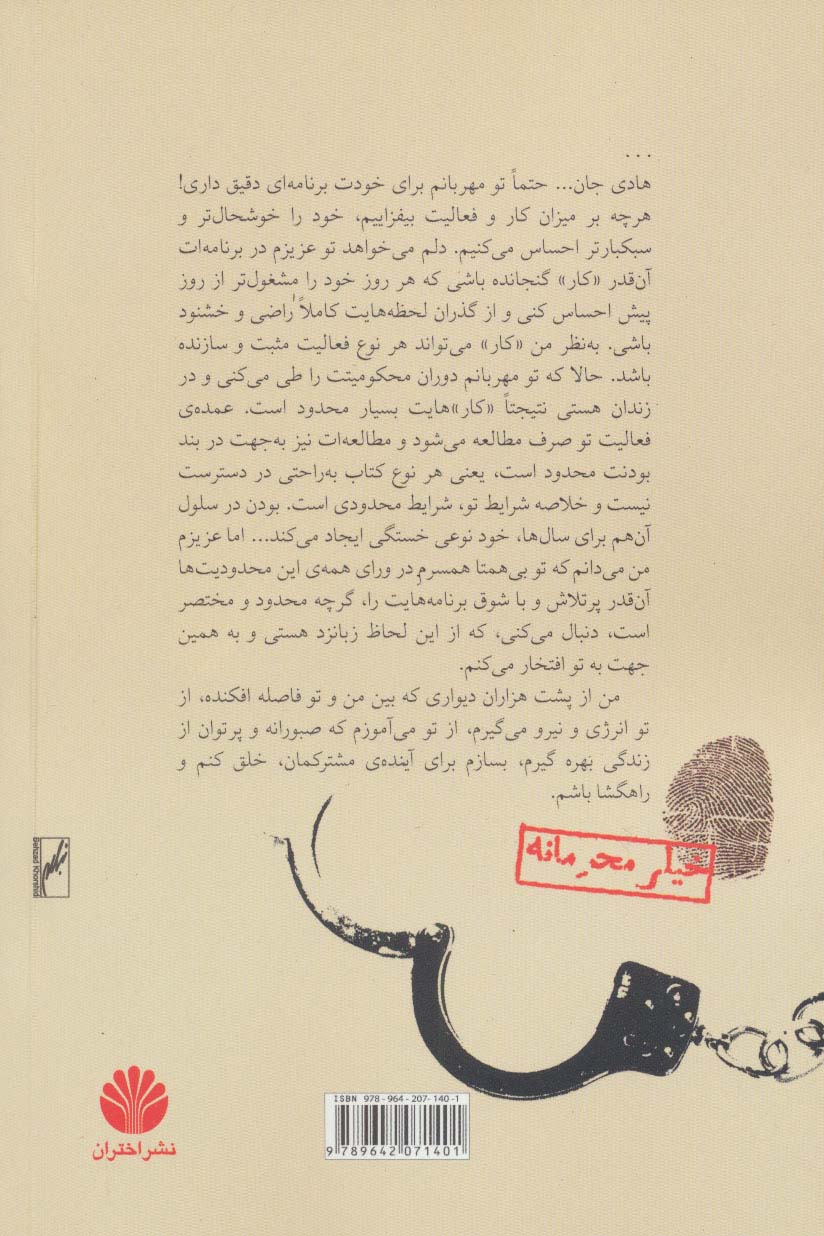 ...
هادی جان... حتماً تو مهربانم برای خودت برنامه‌ای دقیق داری!
هرچه بر میزان کار و فعالیت بیفزاییم، خود را خوشحال‌تر و
سبکبارتر احساس می‌کنیم. دلم می‌خواهد تو عزیزم در برنامه‌ات
آن‌قدر «کار» گنجانده باشی که هر روز خود را مشغول‌تر از روز
پیش احساس کنی و از گذران لحظه‌هایت کاملاً راضی و خشنود
باشی. به‌نظر من «کار» می‌تواند هر نوع فعالیت مثبت و سازنده
باشد. حالا که تو مهربانم دوران محکومیتت را طی می‌کنی و در
زندان هستی نتیجتاً «کار»هایت بسیار محدود است. عمده‌ی
فعالیت تو صرف مطالعه می‌شود و مطالعه‌ات نیز به‌جهت در بند
بودنت محدود است، یعنی هر نوع کتاب به‌راحتی در دسترست
نیست و خلاصه شرایط تو، شرایط محدودی است. بودن در سلول
آن‌هم برای سال‌ها، خود نوعی خستگی ایجاد می‌کند... اما عزیزم
من می‌دانم که تو بی‌همتا همسرم در ورای همه‌ی این محدودیت‌ها
آن‌قدر پرتلاش و با شوق برنامه‌هایت را، گرچه محدود و مختصر
است، دنبال می‌کنی، که از این لحاظ زبانزد هستی و به همین
جهت به تو افتخار می‌کنم.
من از پشت هزاران دیواری که بین من و تو فاصله افکنده، از
تو انرژی و نیرو می‌گیرم، از تو می‌آموزم که صبورانه و پرتوان از
زندگی بهره گیرم، بسازم برای آینده‌ی مشترکمان، خلق کنم و
راهگشا باشم.
خیلی محرمانه
Behzad Khorshidi
نشر اختران
ISBN 978-964-207-140-1
9 789642 071401